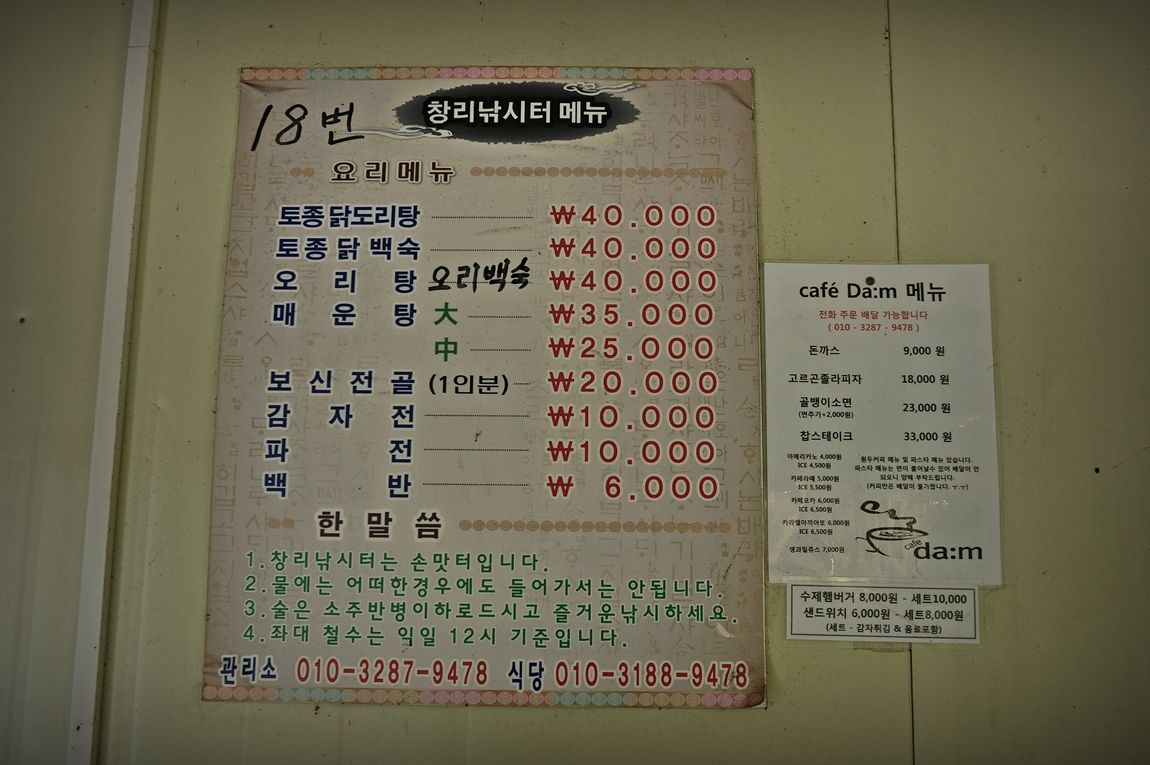 18번
창리낚시터 메뉴
요리메뉴
토종닭도리탕 ₩40.000
토종닭백숙 ₩40.000
오리탕 오리백숙 ₩40.000
매운탕 大 ₩35.000
中 ₩25.000
보신전골 (1인분) ₩20.000
감자전 ₩10.000
파전 ₩10.000
백반 ₩6.000
한말씀
1.창리낚시터는 손맛터입니다.
2.물에는 어떠한경우에도 들어가서는 안됩니다.
3.술은 소주반병이하로드시고 즐거운낚시하세요.
4.좌대 철수는 익일 12시 기준입니다.
관리소 010-3287-9478 식당 010-3188-9478
café Da:m 메뉴
전화 주문 배달 가능합니다
( 010 - 3287 - 9478 )
돈까스 9,000 원
고르곤졸라피자 18,000 원
골뱅이소면 23,000 원
(면추가+2,000원)
찹스테이크 33,000 원
아메리카노 4,000원
ICE 4,500원
카페라떼 5,000원
ICE 5,500원
카페모카 6,000원
ICE 6,500원
카라멜마끼아또 6,000원
ICE 6,500원
생과일쥬스 7,000원
원두커피 메뉴 및 파스타 메뉴 있습니다.
파스타 메뉴는 면이 불어날수 있어 배달이 안
되오니 양해 부탁드립니다.
(커피만은 배달이 불가합니다. ㅜ.ㅜ)
cafe da:m
수제햄버거 8,000원 - 세트10,000
샌드위치 6,000원 - 세트8,000원
(세트 - 감자튀김 & 음료포함)